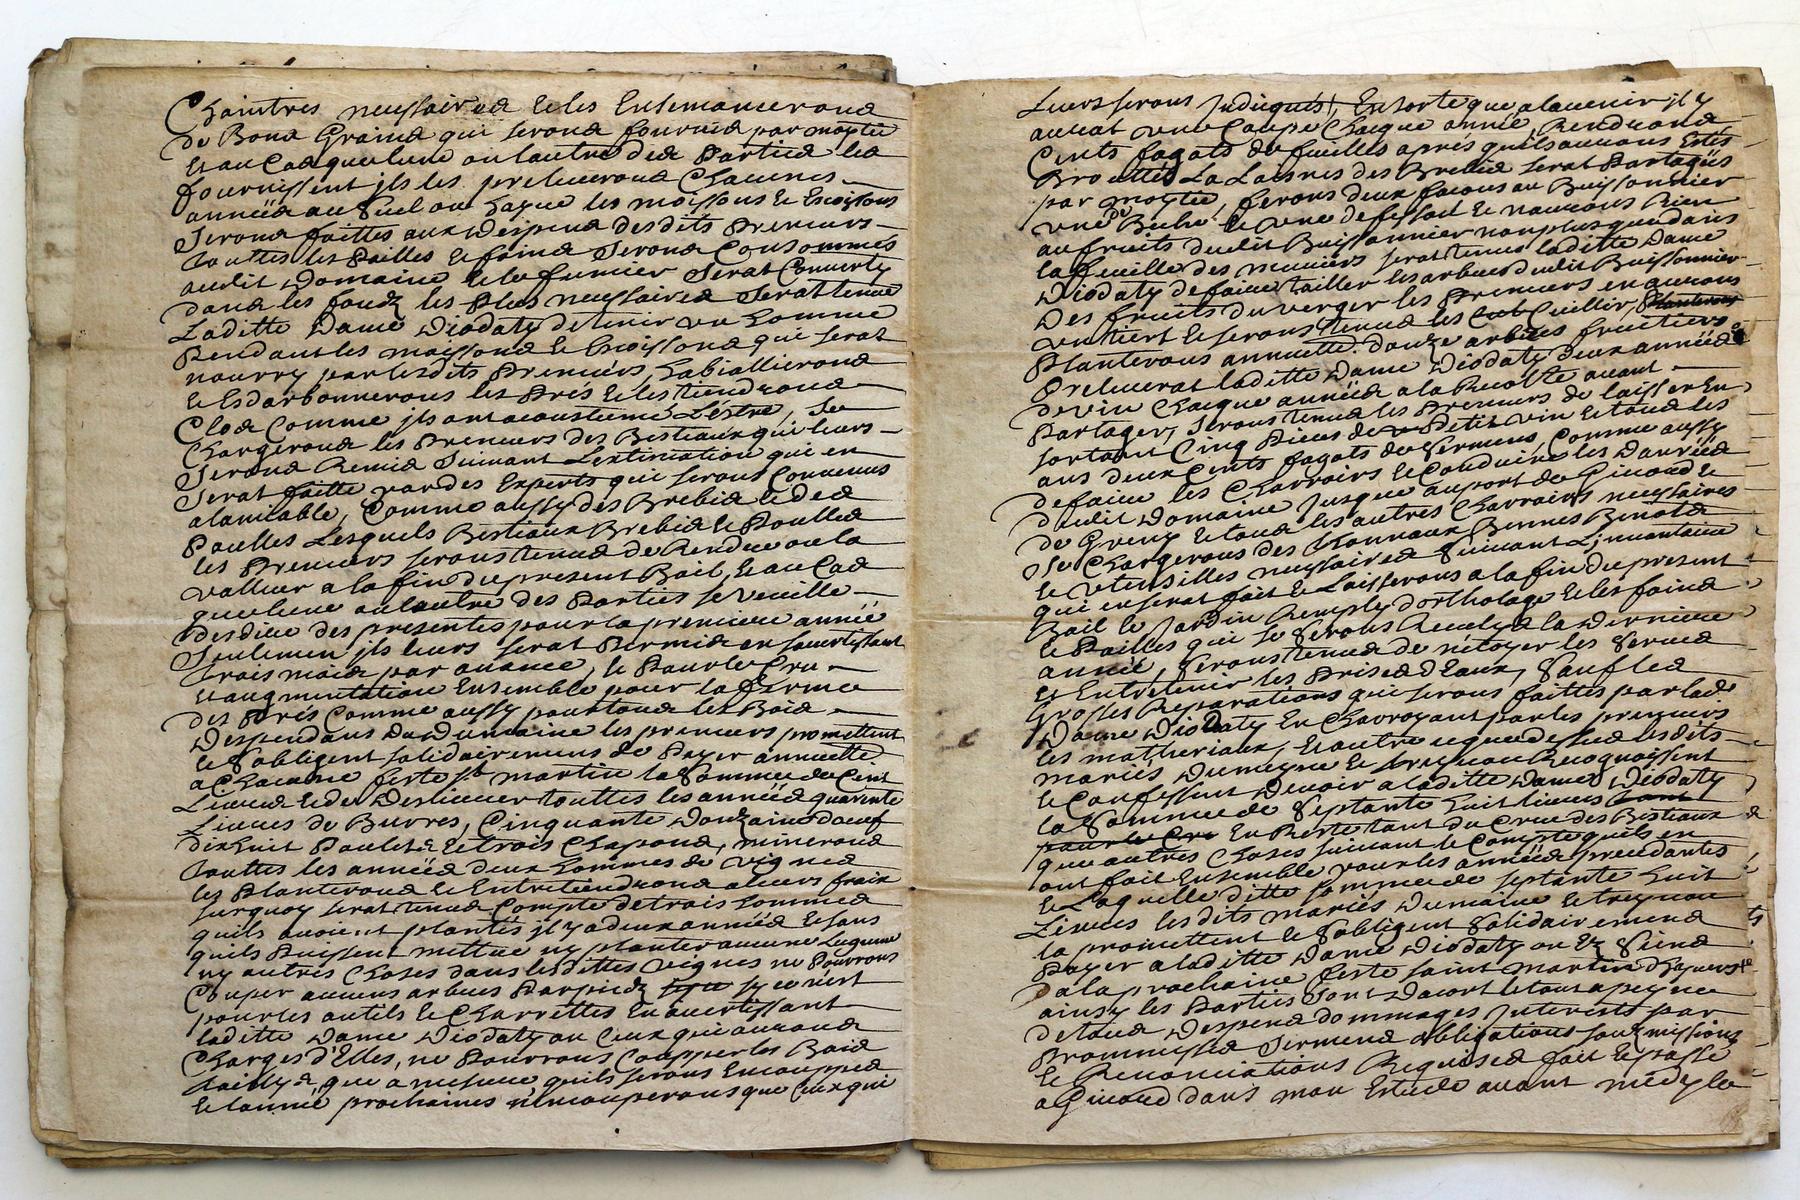 Chaintres neccessaires et les Ensemanceronds
de Bons Grains qui seronds fournis par moytie
Et au Cas que lune ou lautre des Parties les
fournissent jls les preleveronds Chacunes
années au Suel ou haque les moissons Et Escoissons
Seronds faittes aux Despends desdits Preneurs
touttes les Pailles Et foins Seronds Consommés
audit Domaine Et le fumier Serat Converty
dans les fonds les Plus neccessaires Serat tenue
Laditte Dame Diodaty de tenir un homme
Pendant les moissons Et Escoissons qui serat
nourry par lesdits Preneurs, habiallieronds
Et Esdarbonnerons les Prés Et les tiendronds
Clos Comme jls ont acoustumé L'éstre, Se
Chargeronds les Preneurs des Bestiaux qui leurs
Seronds Remis Suivant Lestimation qui en
Serat faitte par des Experts qui serons Convenus
alamiable, Comme aussy des Brebis Et des
Poulles Lesquels Bestiaux Brebis Et Poulles
les Preneurs serons tenus de Rendre ou la
valleur a la fin du present Bail, Et au Cas
que lune ou lautre des Parties se veuille
desdire des presentes pour la premiere année
Seulemen jls leurs serat Permis en savertissant
trois mois par avance, Et Pour le Cru
et augmentation Ensemble pour la ferme
des Prés Comme aussy pour tous les Bois
Despendans du Domaine les preneurs promettent
Et Sobligent solidairemens de Payer annuelle
a Chacune feste St martin la Somme de Cent
Livres Et de Deslivrer touttes les années quarente
Livres de Burres, Cinquante Douzaines doeuf
dixhuit Poulets Et trois Chapons, mineronds
touttes les années deux hommes de vignes
les Planteronds Et Entretiendronds a leurs frais
surquoy serat tenus Compte de trois hommes
quils avoient plantés jl y a deux années Et sans
quils Puissent mettre ny planter aucune Legume
ny autres Choses dans lesdittes vignes ne Pourrons
Couper aucuns arbres Par pieds sy ce n'est
pour les outils Et Charrettes En avertissant
laditte Dame Diodaty ou Ceux qui auronds
Charges d'Elles, ne Pourrons Coupper les Bois
taillys, que a mesure quils serons Encouppes
Et lannée prochaines n'en couperons que Ceux qui
Leurs serons Judiqués, En sorte que alavenir jl y
aurat une Coupe Chacque année, Rendronds
Cents fagots de fueilles aprés quils aurons Estés
Brouttés La Laisnes des Brebis serat Partagés
par moytie, ferons deux facons au Buissonnier
une de Beche Et une de fessou Et naurons Rien
au fruits dudit Buissonnier non plus que dans
la feuille des meuriers serat tenues laditte Dame
Diodaty de faire tailler les arbres dudit Buissonnier
Des fruits du verger les Preneurs en aurons
un tiert Et serons tenus les Cuillir, Planterons
Planterons annuelle. douze arbres fruitiers
Prelleverat laditte Dame Diodaty deux années
de vin Chacque années a la Recolte avant
Partager, serons tenus les Preneurs de laisser En
sortant Cinq Pieces de Petit vin Et tous les
ans deux Cents fagots de Sermens, Comme aussy
de faire les Charroirs Et Conduire les Danrées
dudit Domaine Jusque au port de Givord Et
de Greny Et tous les autres Charroirs neccessaires
Se Chargerons des Thonnaux Bennes Benots
Et Uttensilles neccessaires Suivant Linvantaire
qui en serat fait Et Laisserons a la fin du present
Bail le Jardin Remply d'ortholage Et les foins
Et Pailles qui se Serons Receulys la Derniere
année, Serons tenus de nétoyer les Serves
Et Entretenir les Prises d'Eaux, Sauf les
Grosses Reparations qui serons faittes par lade
Dame Diodaty En Charroyant par les preneurs
les matheriaux, Et outre ce que dessus lesdits
mariés Dumayne Et treynou Recognoissent
Et Confessent Devoir a laditte Dame Diodaty
la Somme de Septante huit livres
pour le Cru En Reste tant du Crue des Bestiaux
que autres Choses suivant le Compte quils en
ont fait Ensemble pour les années precedantes
Et Laquelle ditte somme de septante huit
Livres lesdits mariés Dumaine Et treynou
la promettent Et Sobligent Solidairemens
Payer a laditte Dame Diodaty ou Ez Siens
Da la prochaine feste saint martin d'hyvers
ainsy les Parties Sont Dacort Et tout a peyne
de tous Despens dommages Jnterests par
Prommesses Sermens obligations sousmissions
Et Renonciations Requises fait Et passé
a Givord dans mon Estude avant midy le